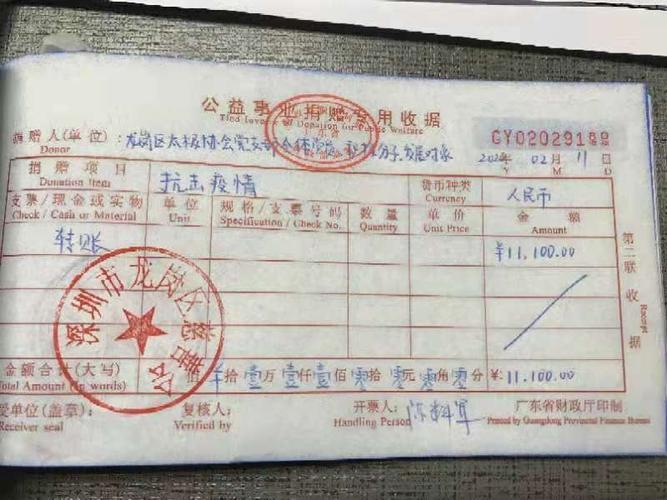 公益事业捐赠专用收据
Tied Invoice of Donation for Public Welfare
捐赠人(单位): 龙岗区太极协会党支部全体党员 积极分子、发展对象
Donor
CY02029188
2020年 02 月 11 日
Y M D
捐赠项目 抗击疫情 货币种类 人民币
Donation Item Currency
支票/现金或实物 单位 规格/支票号码 数量 单价 金额
Check / Cash or Material Unit Specification / Check No. Quantity Unit Price Amount
转账 ¥11,100.00
第二联 收据
Receipt
深圳市龙岗区慈善会
金额合计(大写) 佰 ¥拾 壹万 壹仟 壹佰 零拾 零元 零角 零分 ¥: 11,100.00
Total Amount (in words)
受单位(盖章): 复核人: 开票人: 广东省财政厅印制
Receiver seal Verified by Handling Person Printed by Guangdong Provincial Finance Bureau